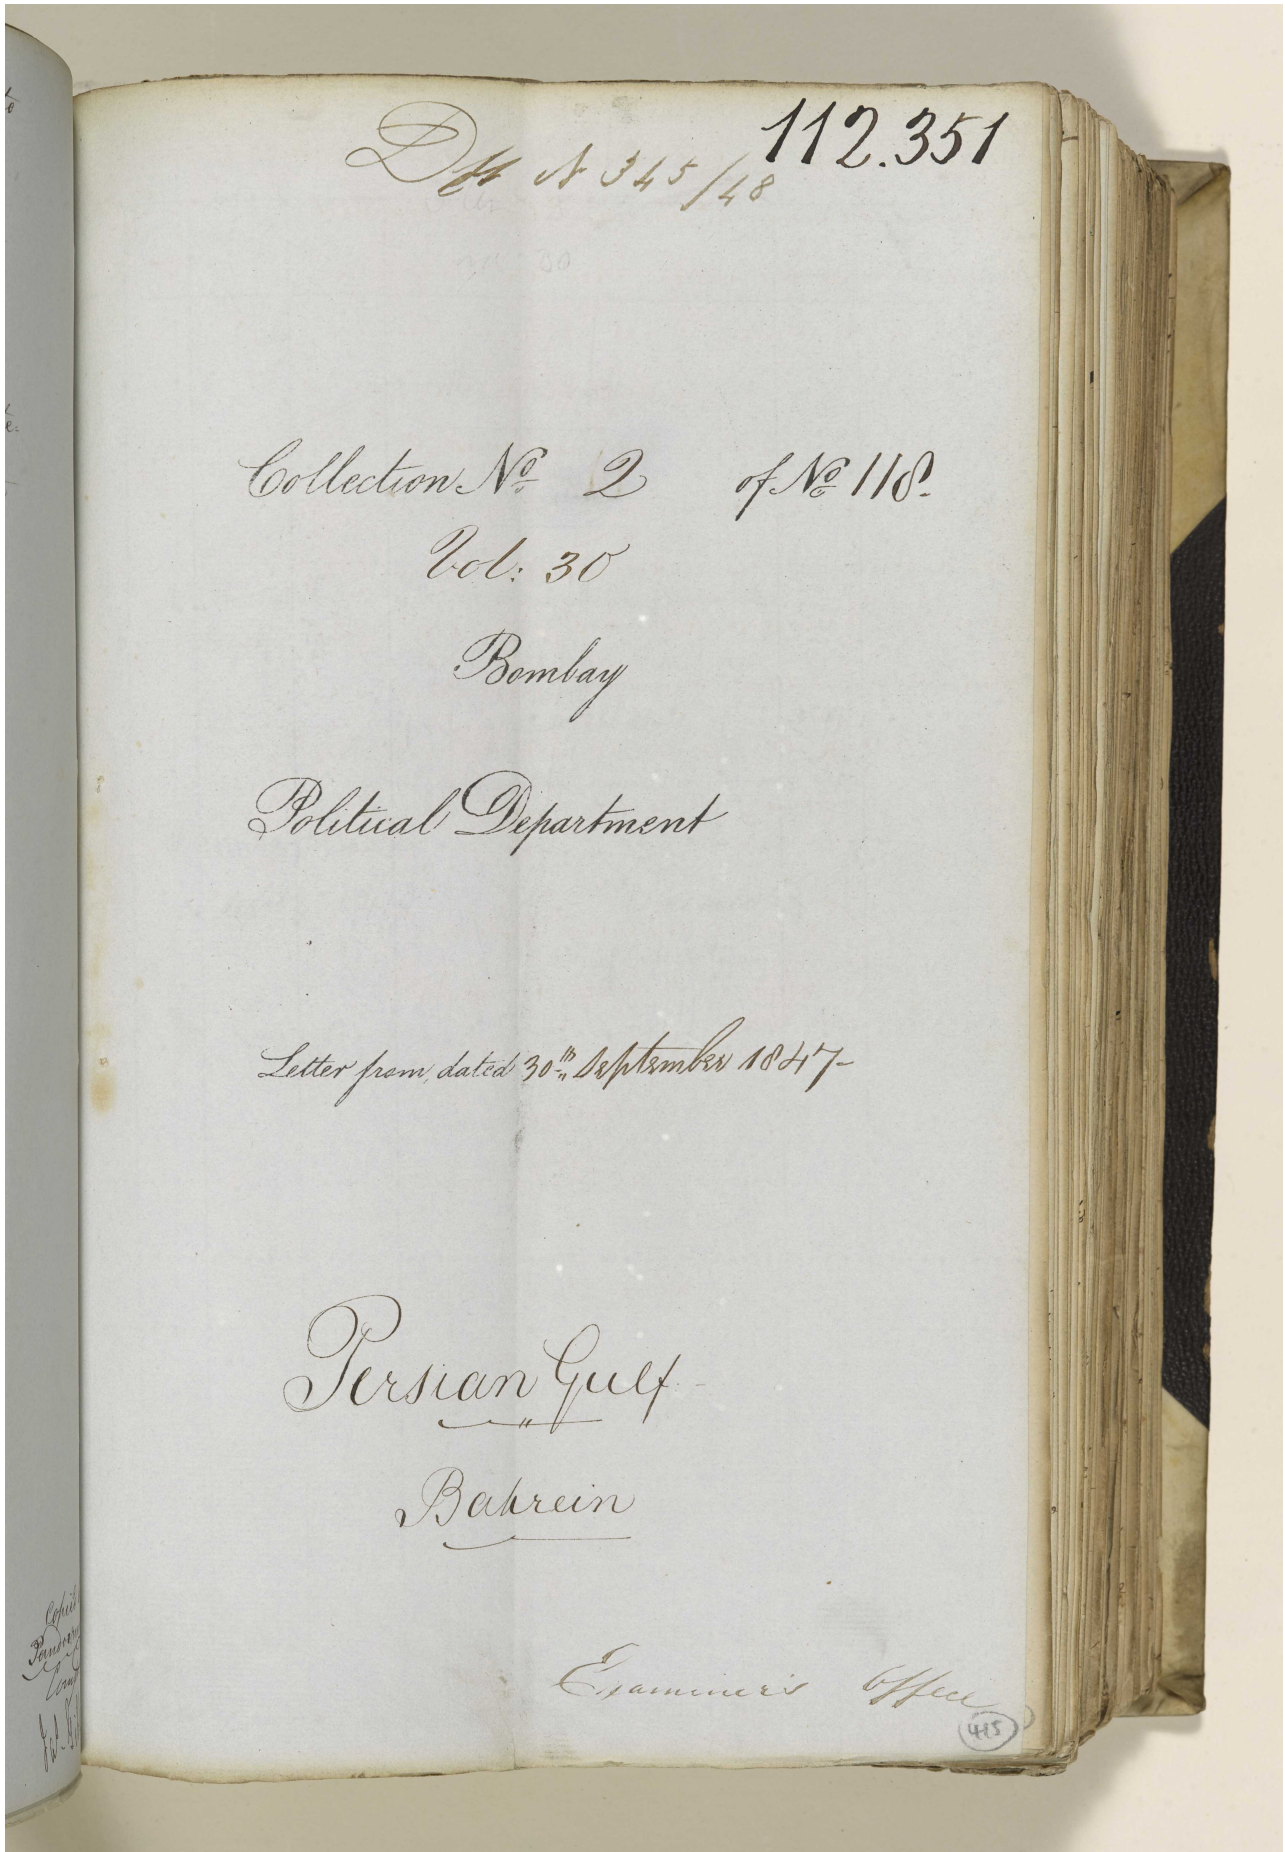 112.351
Dft N 345/48
Collection No 2 of No 118.
Vol: 30
Bombay
Political Department
Letter from, dated 30th September 1847-
Persian Gulf
Bahrein
Examiner's Office
415